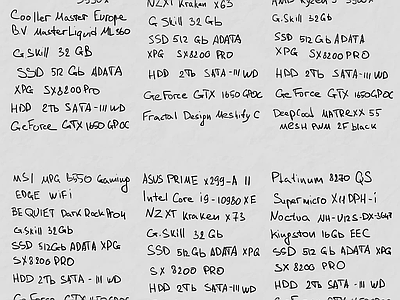 Cooller Master Europe
BV MasterLiquid ML360
G.Skill 32 GB
SSD 512 Gb ADATA
XPG SX8200 Pro
HDD 2Tb SATA-III WD
GeForce GTX 1650 GPOC
NZXT Kraken X63
G.Skill 32 Gb
SSD 512 Gb ADATA
XPG SX8200 PRO
HDD 2Tb SATA-III WD
GeForce GTX 1650 GPOC
Fractal Design Meshify C
G.Skill 32Gb
SSD 512 Gb ADATA
XPG SX8200 PRO
HDD 2Tb SATA-III WD
GeForce GTX 1650 GPOC
DeepCool MATREXX 55
MESH PWM 2F black
MSI MPG b550 Gaming
EDGE WiFi
BE QUIET Dark Rock Pro4
G.Skill 32 Gb
SSD 512Gb ADATA XPG
SX8200 PRO
HDD 2Tb SATA-III WD
ASUS PRIME x299-A II
Intel Core i9-10980XE
NZXT Kraken X73
G.Skill 32 Gb
SSD 512 Gb ADATA XPG
SX 8200 PRO
HDD 2Tb SATA-III WD
Platinum 8270 QS
Supermicro X11DPH-i
Noctua NH-U12S-DX-3647
Kingston 16Gb EEC
SSD 512 Gb ADATA XPG
SX 8200 PRO
HDD 2Tb SATA-III WD